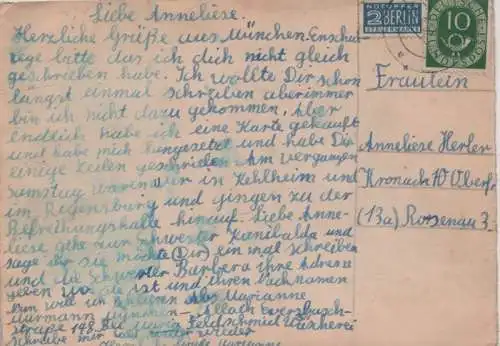 Liebe Anneliese.
Herzliche Grüße aus München. Enschul
rege bitte das ich dich nicht gleich
geschrieben habe. Ich wollte Dir schon
längst einmal schreiben aber immer
bin ich nicht dazu gekommen, Aber
endlich habe ich eine Karte gekauft
und habe mich hingesetzt und habe Dir
einige Zeilen geschrieben. Am vergangen
Samstag waren wir in Kehlheim und
im Regensburg und gingen zu der
Befreihungshalle hinauf. Liebe Anne-
liese gehe zur Schwester Kanibalda und
sage ihr sie möchte (Dir) ein mal schreiben
und die Schwester Barbara ihre Adresse
geben wo sie ist und ihren Nachnamen
Nun will ich
Marianne
Murmann München - Allach Eversbusch-
straße 148 Bei Maria Feldschmid Wäscherei
Schreibe mir
NOTOPFER
2 BERLIN
STEUERMARKE
10
Fräulein
Anneliese Herler
Kronach 10 Oberf
(13a) Rosenau 3